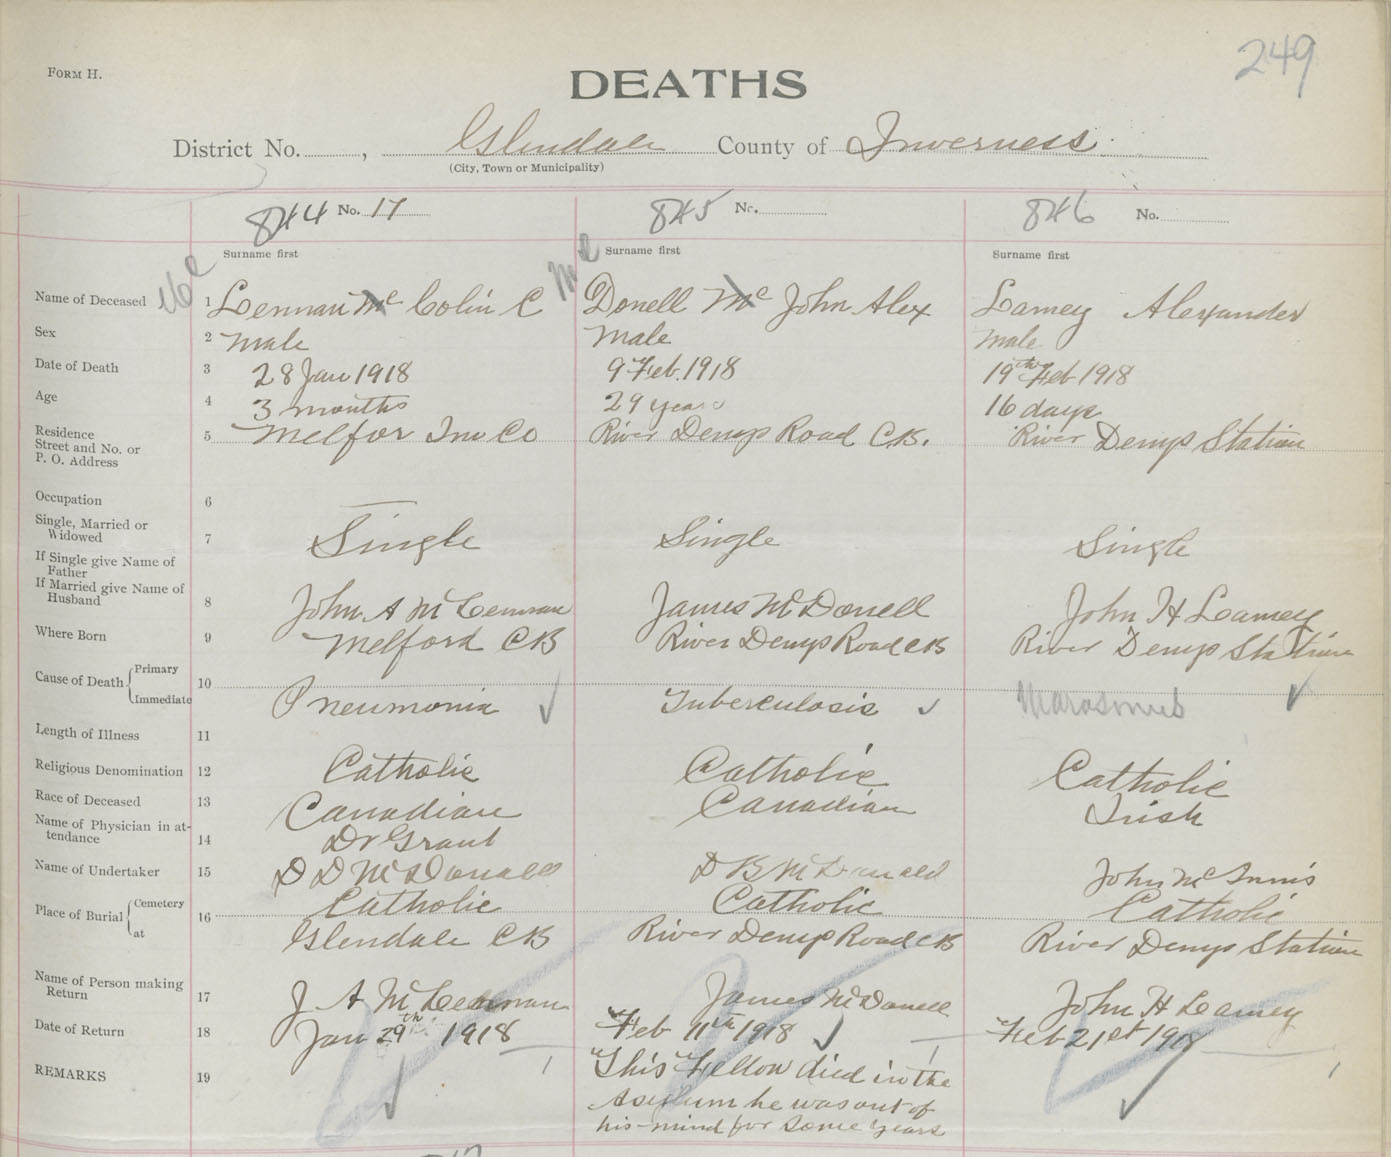 249
FORM H.
DEATHS
District No. , Glendale County of Inverness
(City, Town or Municipality)
844 No. 17
845 No.
846 No.
Surname first
Surname first
Surname first
Name of Deceased 1 Mc Lennan Mc Colin C
Mc Donell Mc John Alex
Lamey Alexander
Sex 2 Male
Male
Male
Date of Death 3 28 Jan 1918
9 Feb. 1918
19th Feb 1918
Age 4 3 months
29 years
16 days
Residence
Street and No. or
P. O. Address
5 Melfor Inv Co
River Denys Road C.B.
River Denys Station
Occupation 6
Single, Married or
Widowed
7 Single
Single
Single
If Single give Name of
Father
If Married give Name of
Husband
8 John A McLennan
James McDonell
John H Lamey
Where Born 9 Melford CB
River Denys Road CB
River Denys Station
Cause of Death Primary
Immediate
10 Pneumonia
Tuberculosis
Marasmus
Length of Illness 11
Religious Denomination 12 Catholic
Catholic
Catholic
Race of Deceased 13 Canadian
Canadian
Irish
Name of Physician in at-
tendance
14 Dr Grant
Name of Undertaker 15 D D McDonald
D B McDonald
John McInnis
Place of Burial Cemetery
at
16 Catholic
Glendale CB
Catholic
River Denys Road CB
Catholic
River Denys Station
Name of Person making
Return
17 J A McLennan
James McDonell
John H Lamey
Date of Return 18 Jan 29th 1918
Feb 11th 1918
Feb 21st 1918
REMARKS 19
This Fellow died in the
Asylum he was out of
his mind for some years